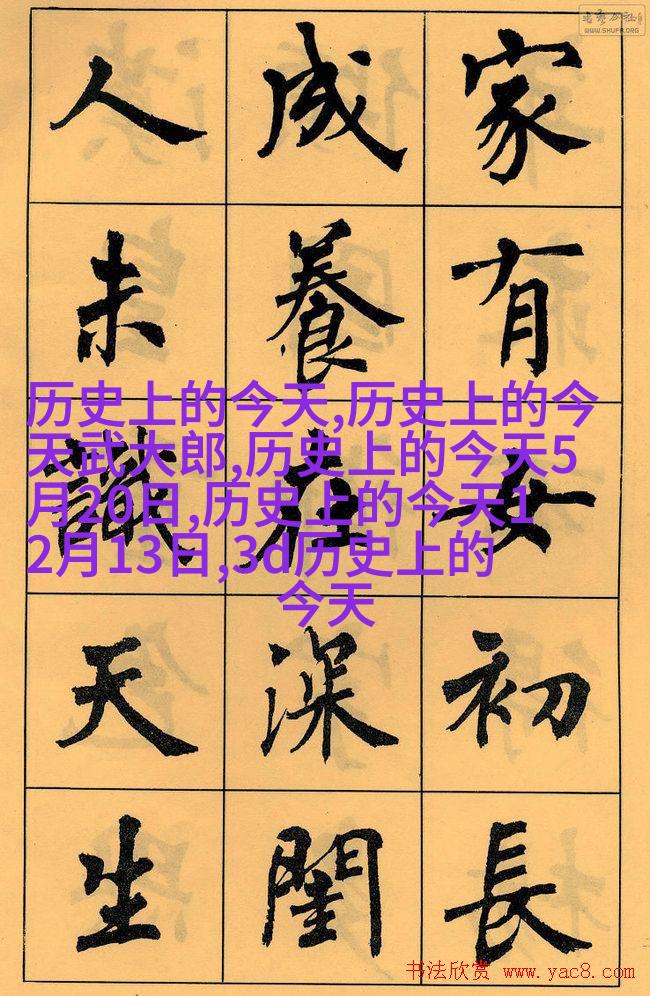 WWW.SHUFA.ORG
家有女初長
成養在深閨
人未識天生
历史上的今天,历史上的今
天武大郎,历史上的今天5
月20日,历史上的今天1
2月13日,3d历史上的
今天
书法欣赏 www.yac8.com